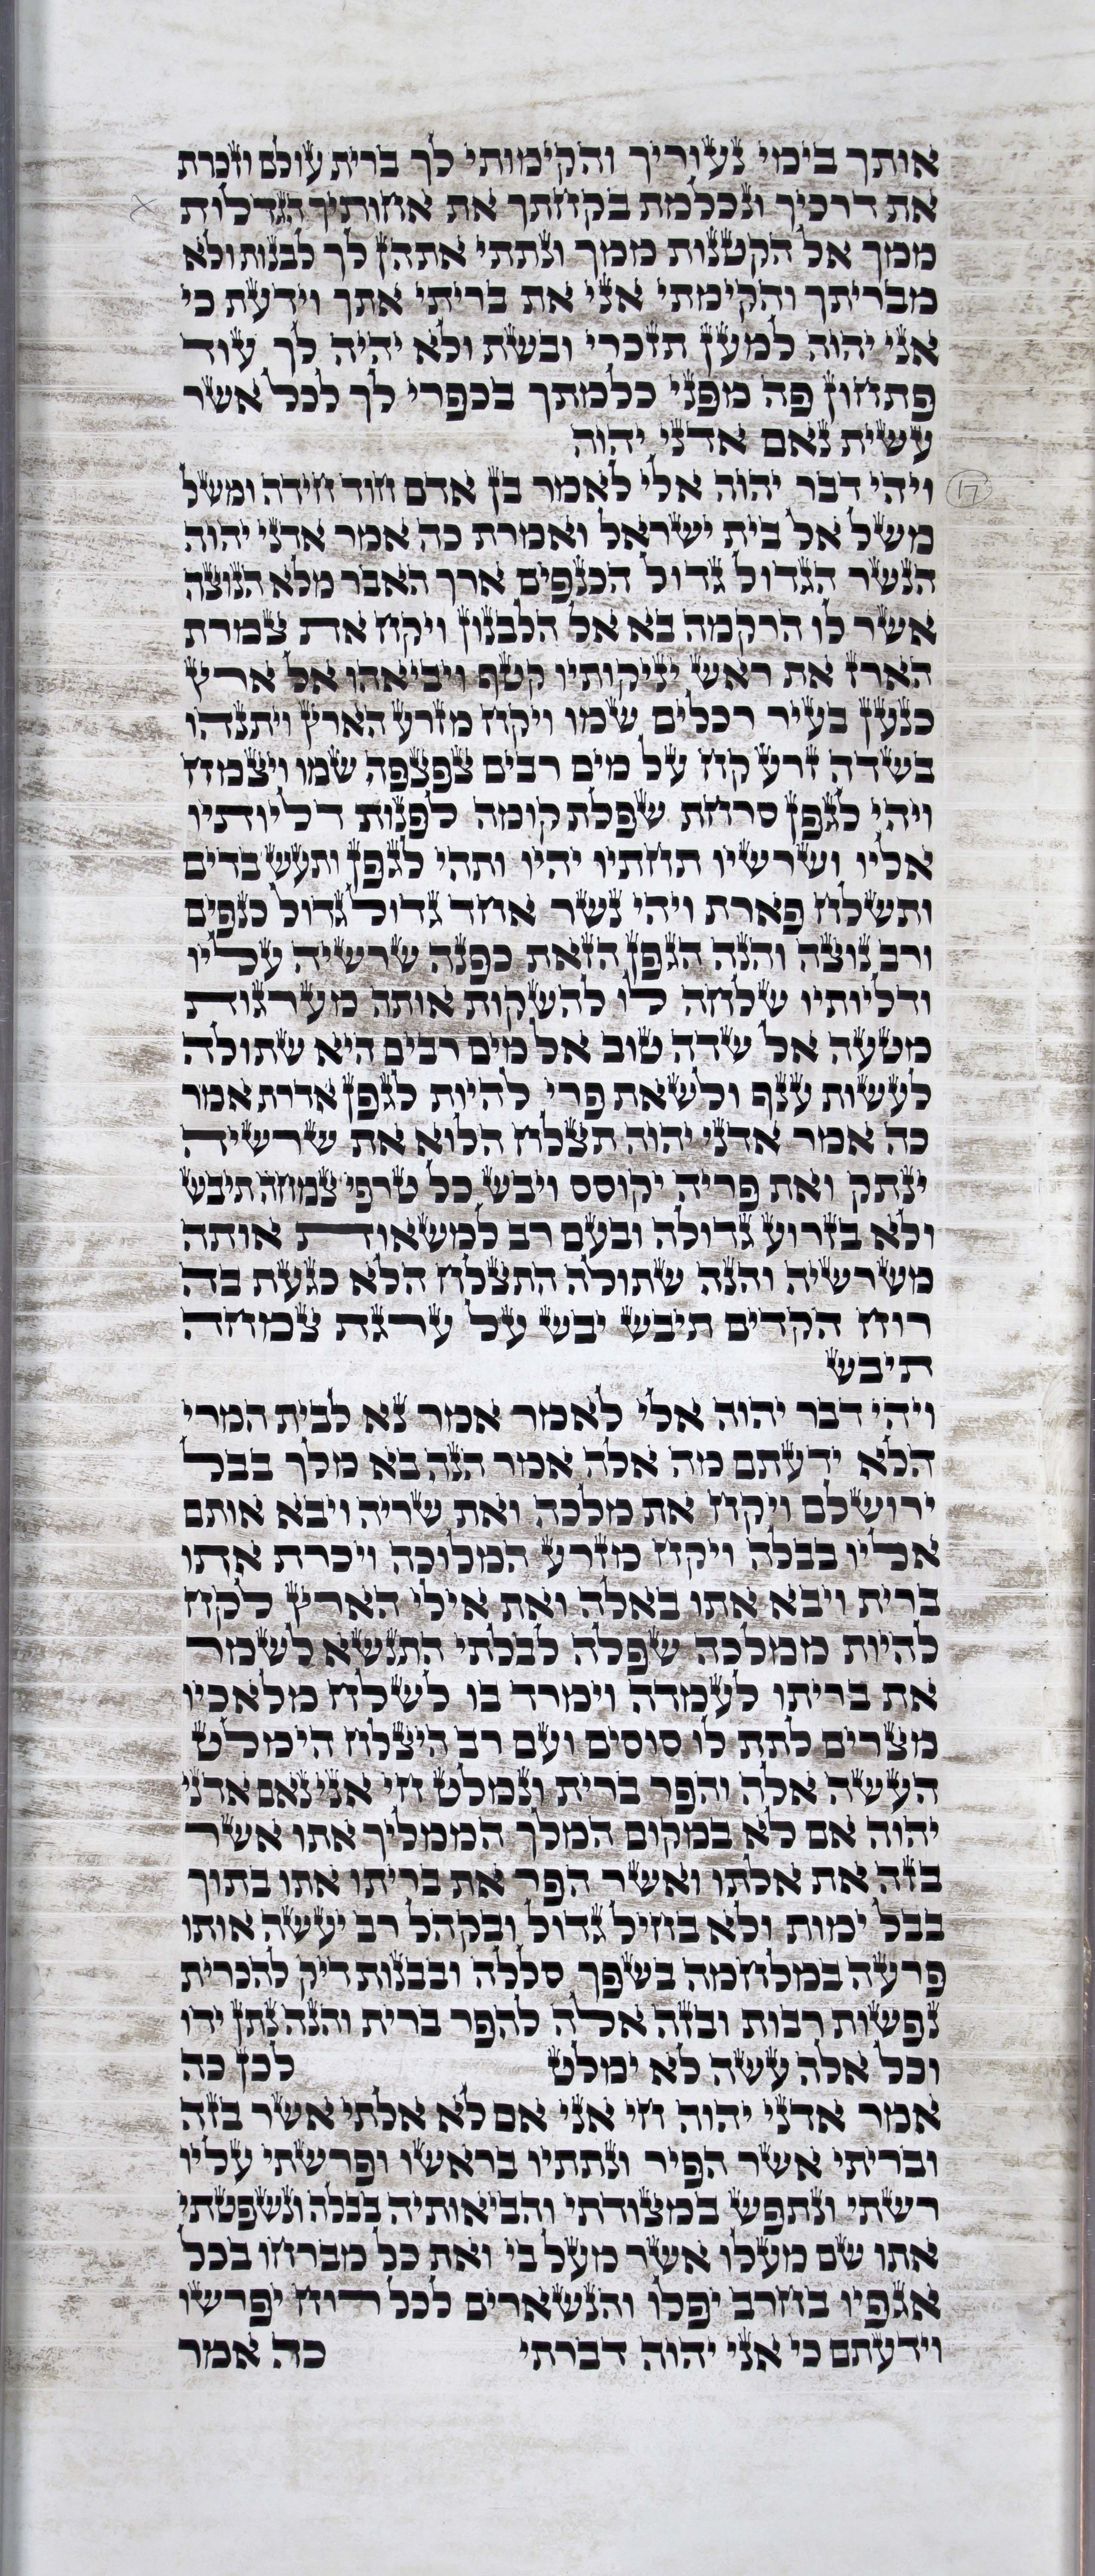 אותך בימי נעוריך והקימותי לך ברית עולם וזכרת
את דרכיך ונכלמת בקחתך את אחותיך הגדלות
ממך אל הקטנות ממך ונתתי אתהן לך לבנות ולא
מבריתך והקימתי אני את בריתי אתך וידעת כי
אני יהוה למען תזכרי ובשת ולא יהיה לך עוד
פתחון פה מפני כלמתך בכפרי לך לכל אשר
עשית נאם אדני יהוה
ויהי דבר יהוה אלי לאמר בן אדם חוד חידה ומשל
17
משל אל בית ישראל ואמרת כה אמר אדני יהוה
הנשר הגדול גדול הכנפים ארך האבר מלא הנוצה
אשר לו הרקמה בא אל הלבנון ויקח את צמרת
הארז את ראש יניקותיו קטף ויביאהו אל ארץ
כנען בעיר רכלים שמו ויקח מזרע הארץ ויתנהו
בשדה זרע קח על מים רבים צפצפה שמו ויצמח
ויהי לגפן סרחת שפלת קומה לפנות דליותיו
אליו ושרשיו תחתיו יהיו ותהי לגפן ותעש בדים
ותשלח פארת ויהי נשר אחד גדול גדול כנפים
ורב נוצה והנה הגפן הזאת כפנה שרשיה עליו
ודליותיו שלחה לו להשקות אותה מערגות
מטעה אל שדה טוב אל מים רבים היא שתולה
לעשות ענף ולשאת פרי להיות לגפן אדרת אמר
כה אמר אדני יהוה תצלח הלוא את שרשיה
ינתק ואת פריה יקוסס ויבש כל טרפי צמחה תיבש
ולא בזרוע גדולה ובעם רב למשאות אותה
משרשיה והנה שתולה התצלח הלא כגעת בה
רוח הקדים תיבש יבש על ערגת צמחה
תיבש
ויהי דבר יהוה אלי לאמר אמר נא לבית המרי
הלא ידעתם מה אלה אמר הנה בא מלך בבל
ירושלם ויקח את מלכה ואת שריה ויבא אותם
אליו בבלה ויקח מזרע המלוכה ויכרת אתו
ברית ויבא אתו באלה ואת אילי הארץ לקח
להיות ממלכה שפלה לבלתי התנשא לשמר
את בריתו לעמדה וימרד בו לשלח מלאכיו
מצרים לתת לו סוסים ועם רב היצלח הימלט
העשה אלה והפר ברית ונמלט חי אני נאם אדני
יהוה אם לא במקום המלך הממליך אתו אשר
בזה את אלתו ואשר הפר את בריתו אתו בתוך
בבל ימות ולא בחיל גדול ובקהל רב יעשה אותו
פרעה במלחמה בשפך סללה ובבנות דיק להכרית
נפשות רבות ובזה אלה להפר ברית והנה נתן ידו
וכל אלה עשה לא ימלט לכן כה
אמר אדני יהוה חי אני אם לא אלתי אשר בזה
ובריתי אשר הפיר ונתתיו בראשו ופרשתי עליו
רשתי ונתפש במצודתי והביאותיה בבלה ונשפטתי
אתו שם מעלו אשר מעל בי ואת כל מברחו בכל
אגפיו בחרב יפלו והנשארים לכל רוח יפרשו
וידעתם כי אני יהוה דברתי כה אמר